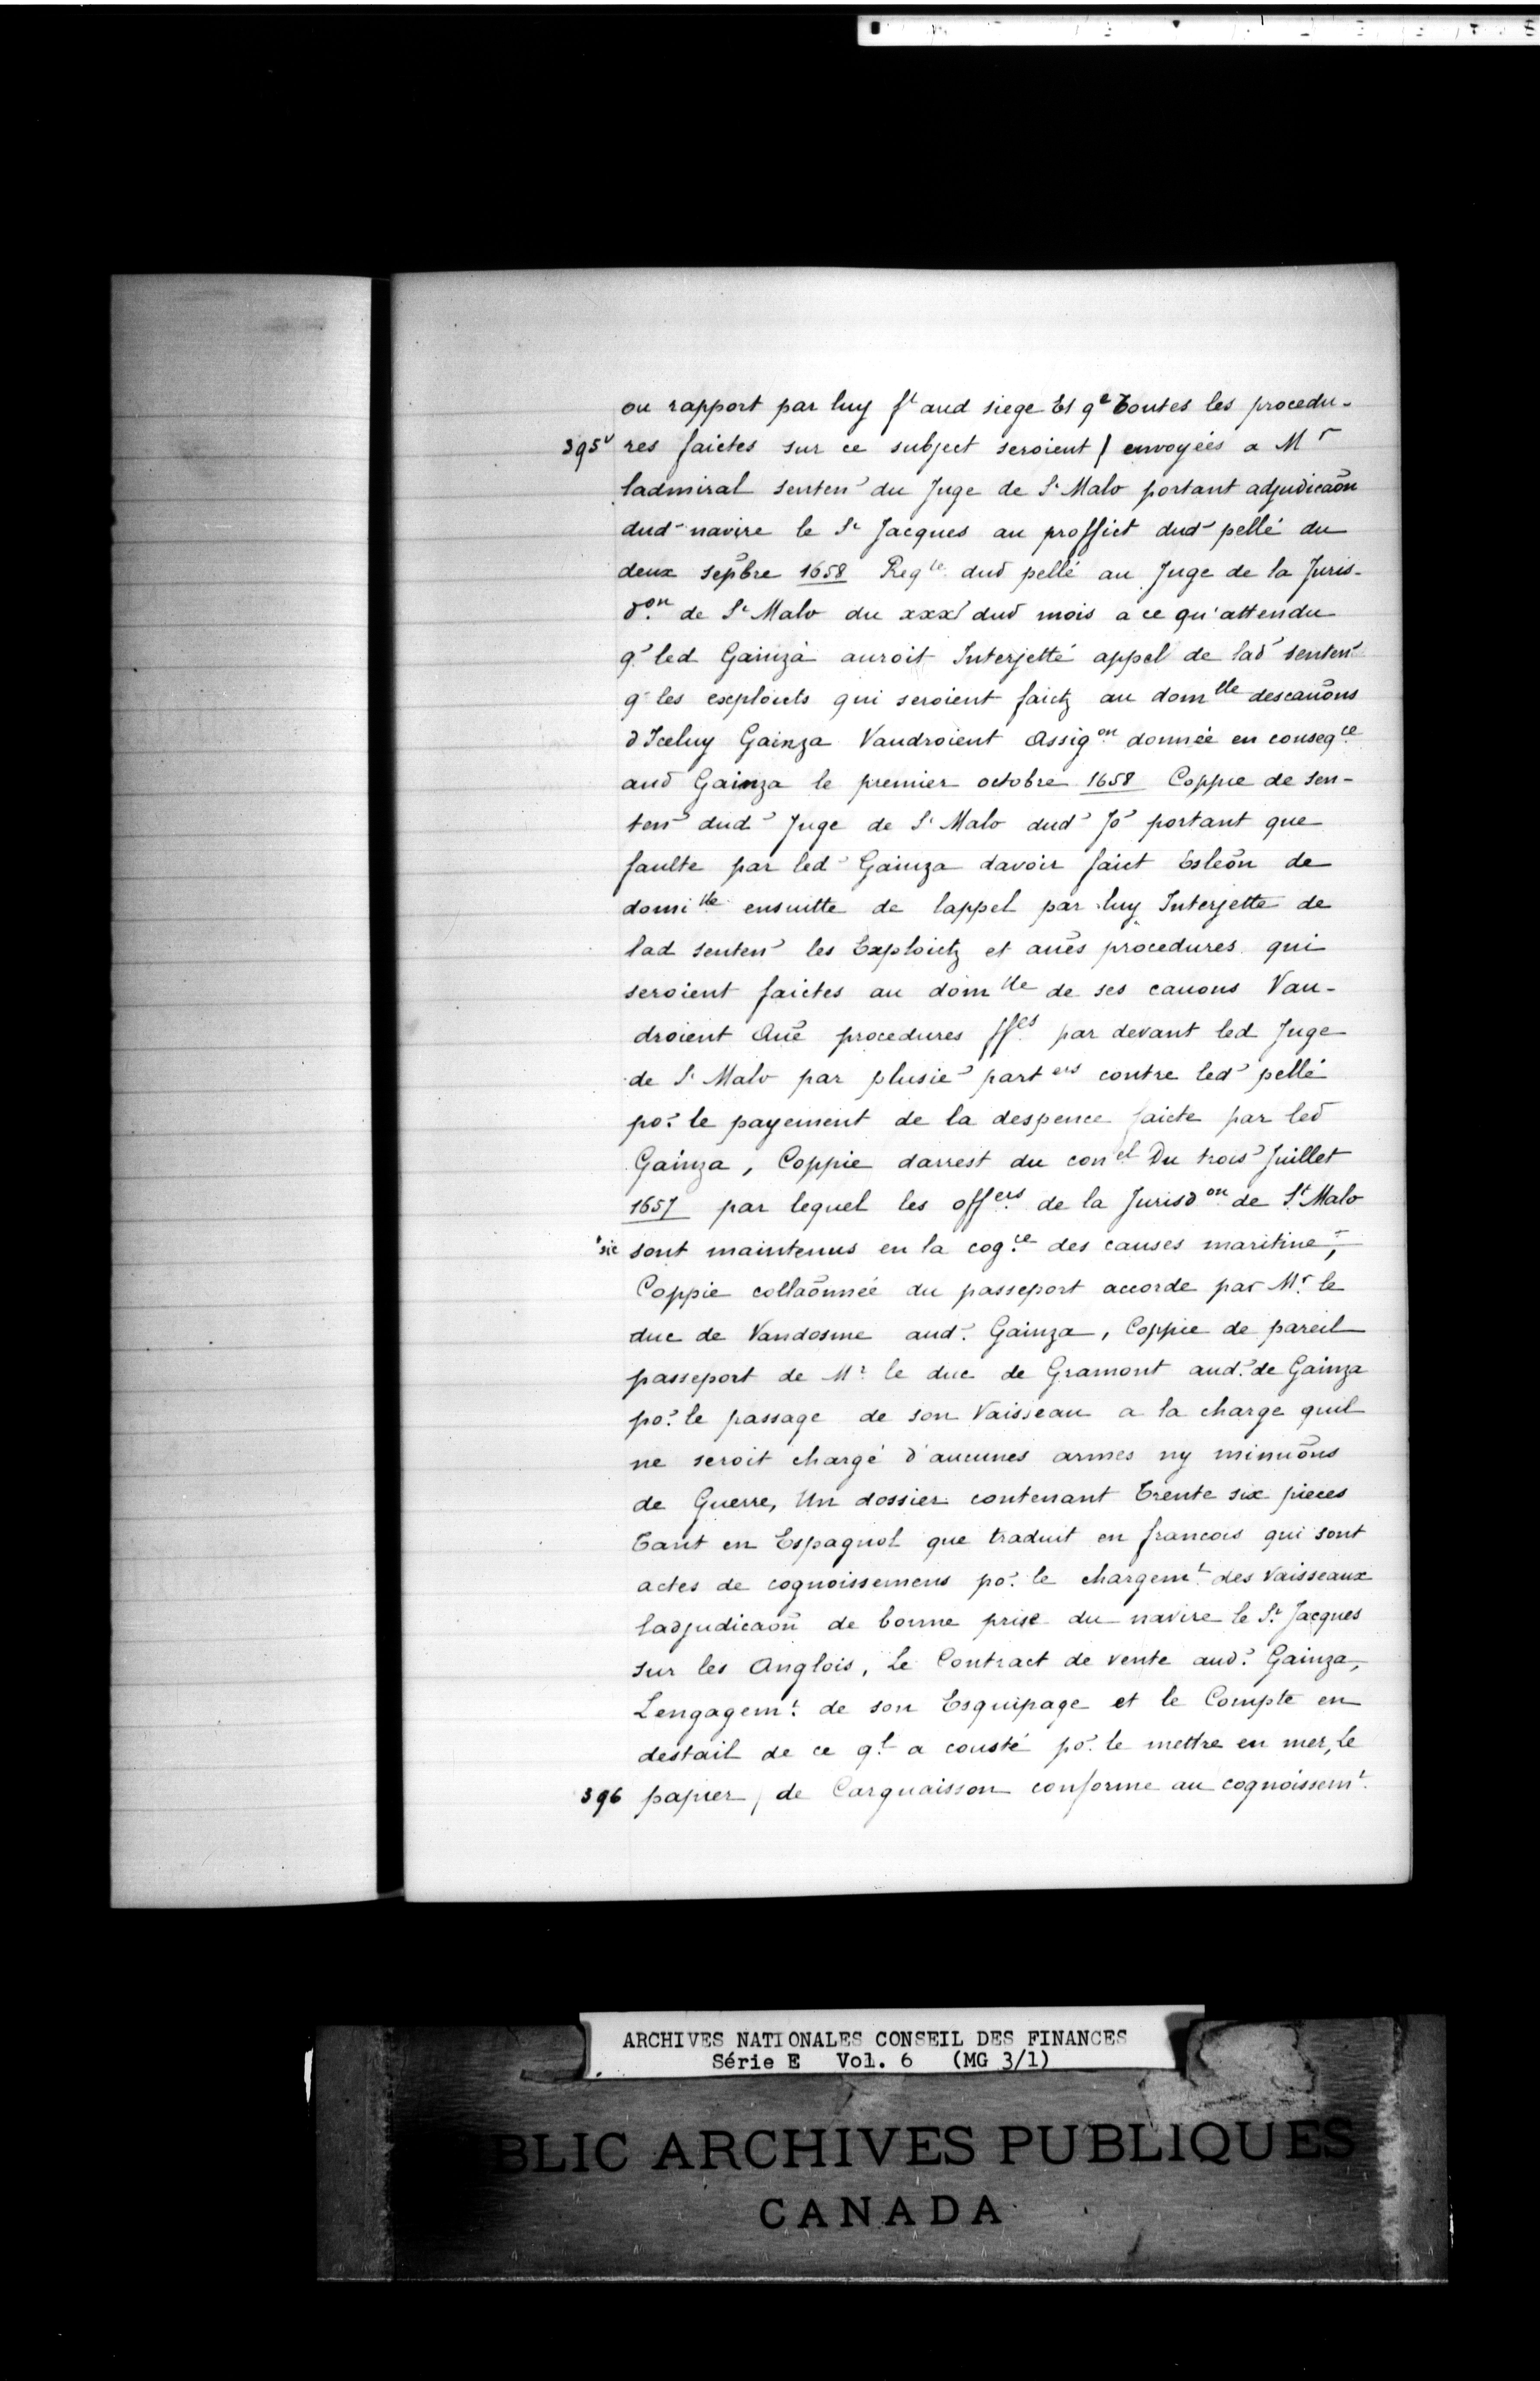 ou rapport par luy f^t aud siege Et q^e Toutes les procedu-
395^v res faictes sur ce subject seroient / envoyées a M^r
ladmiral senten^ du Juge de S^t Malo portant adjudicaōn
dud navire le S^t Jacques au proffict dud pellé du
deux sepbre 1658 Req^te dud pellé au Juge de la Juris-
d^on de S^t Malo du xxx^ dud mois a ce qu'attendu
q^ led Gainza auroit Interjetté appel de lad senten^
q^ les exploicts qui seroient faictz au dom^lle descauōns
d Iceluy Gainza Vaudroient Assig^on donnée en conseq^ce
aud Gainza le premier octobre 1658 Coppie de sen-
ten^ dud Juge de S^t Malo dud Jo^ portant que
faulte par led Gainza davoir faict Esleōn de
domi^lle ensuitte de lappel par luy Interjette de
lad senten^ les Exploictz et auēs procedures qui
seroient faictes au dom^lle de ses cauons Vau-
droient Auē procedures ff^es par devant led Juge
de S^t Malo par plusie^ part^ers contre led pellé
po^r le payement de la despence faicte par led
Gainza, Coppie darrest du con^el Du trois Juillet
1657 par lequel les off^ers de la Jurisd^on de S^t Malo
sic sont maintenus en la cog^ce des causes maritine,
Coppie collaōnnée du passeport accorde par M^r le
duc de Vandosme aud. Gainza, Coppie de pareil
passeport de M^r le duc de Gramont aud. de Gainza
po^r le passage de son Vaisseau a la charge quil
ne seroit chargé d'aucunes armes ny minuōns
de Guerre, Un dossier contenant Trente six pieces
Tant en Espagnol que traduit en francois qui sont
actes de cognoissemens po^r le chargem^t des Vaisseaux
ladjudicaōn de bonne prise du navire le S^t Jacques
sur les Anglois, Le Contract de vente aud. Gainza,
Lengagem^t de son Esquipage et le Compte en
destail de ce q^l a cousté po^r le mettre en mer, le
396 papier / de Carquaisson conforme au cognoissem^t
ARCHIVES NATIONALES CONSEIL DES FINANCES
Série E Vol. 6 (MG 3/1)
BLIC ARCHIVES PUBLIQUES
CANADA